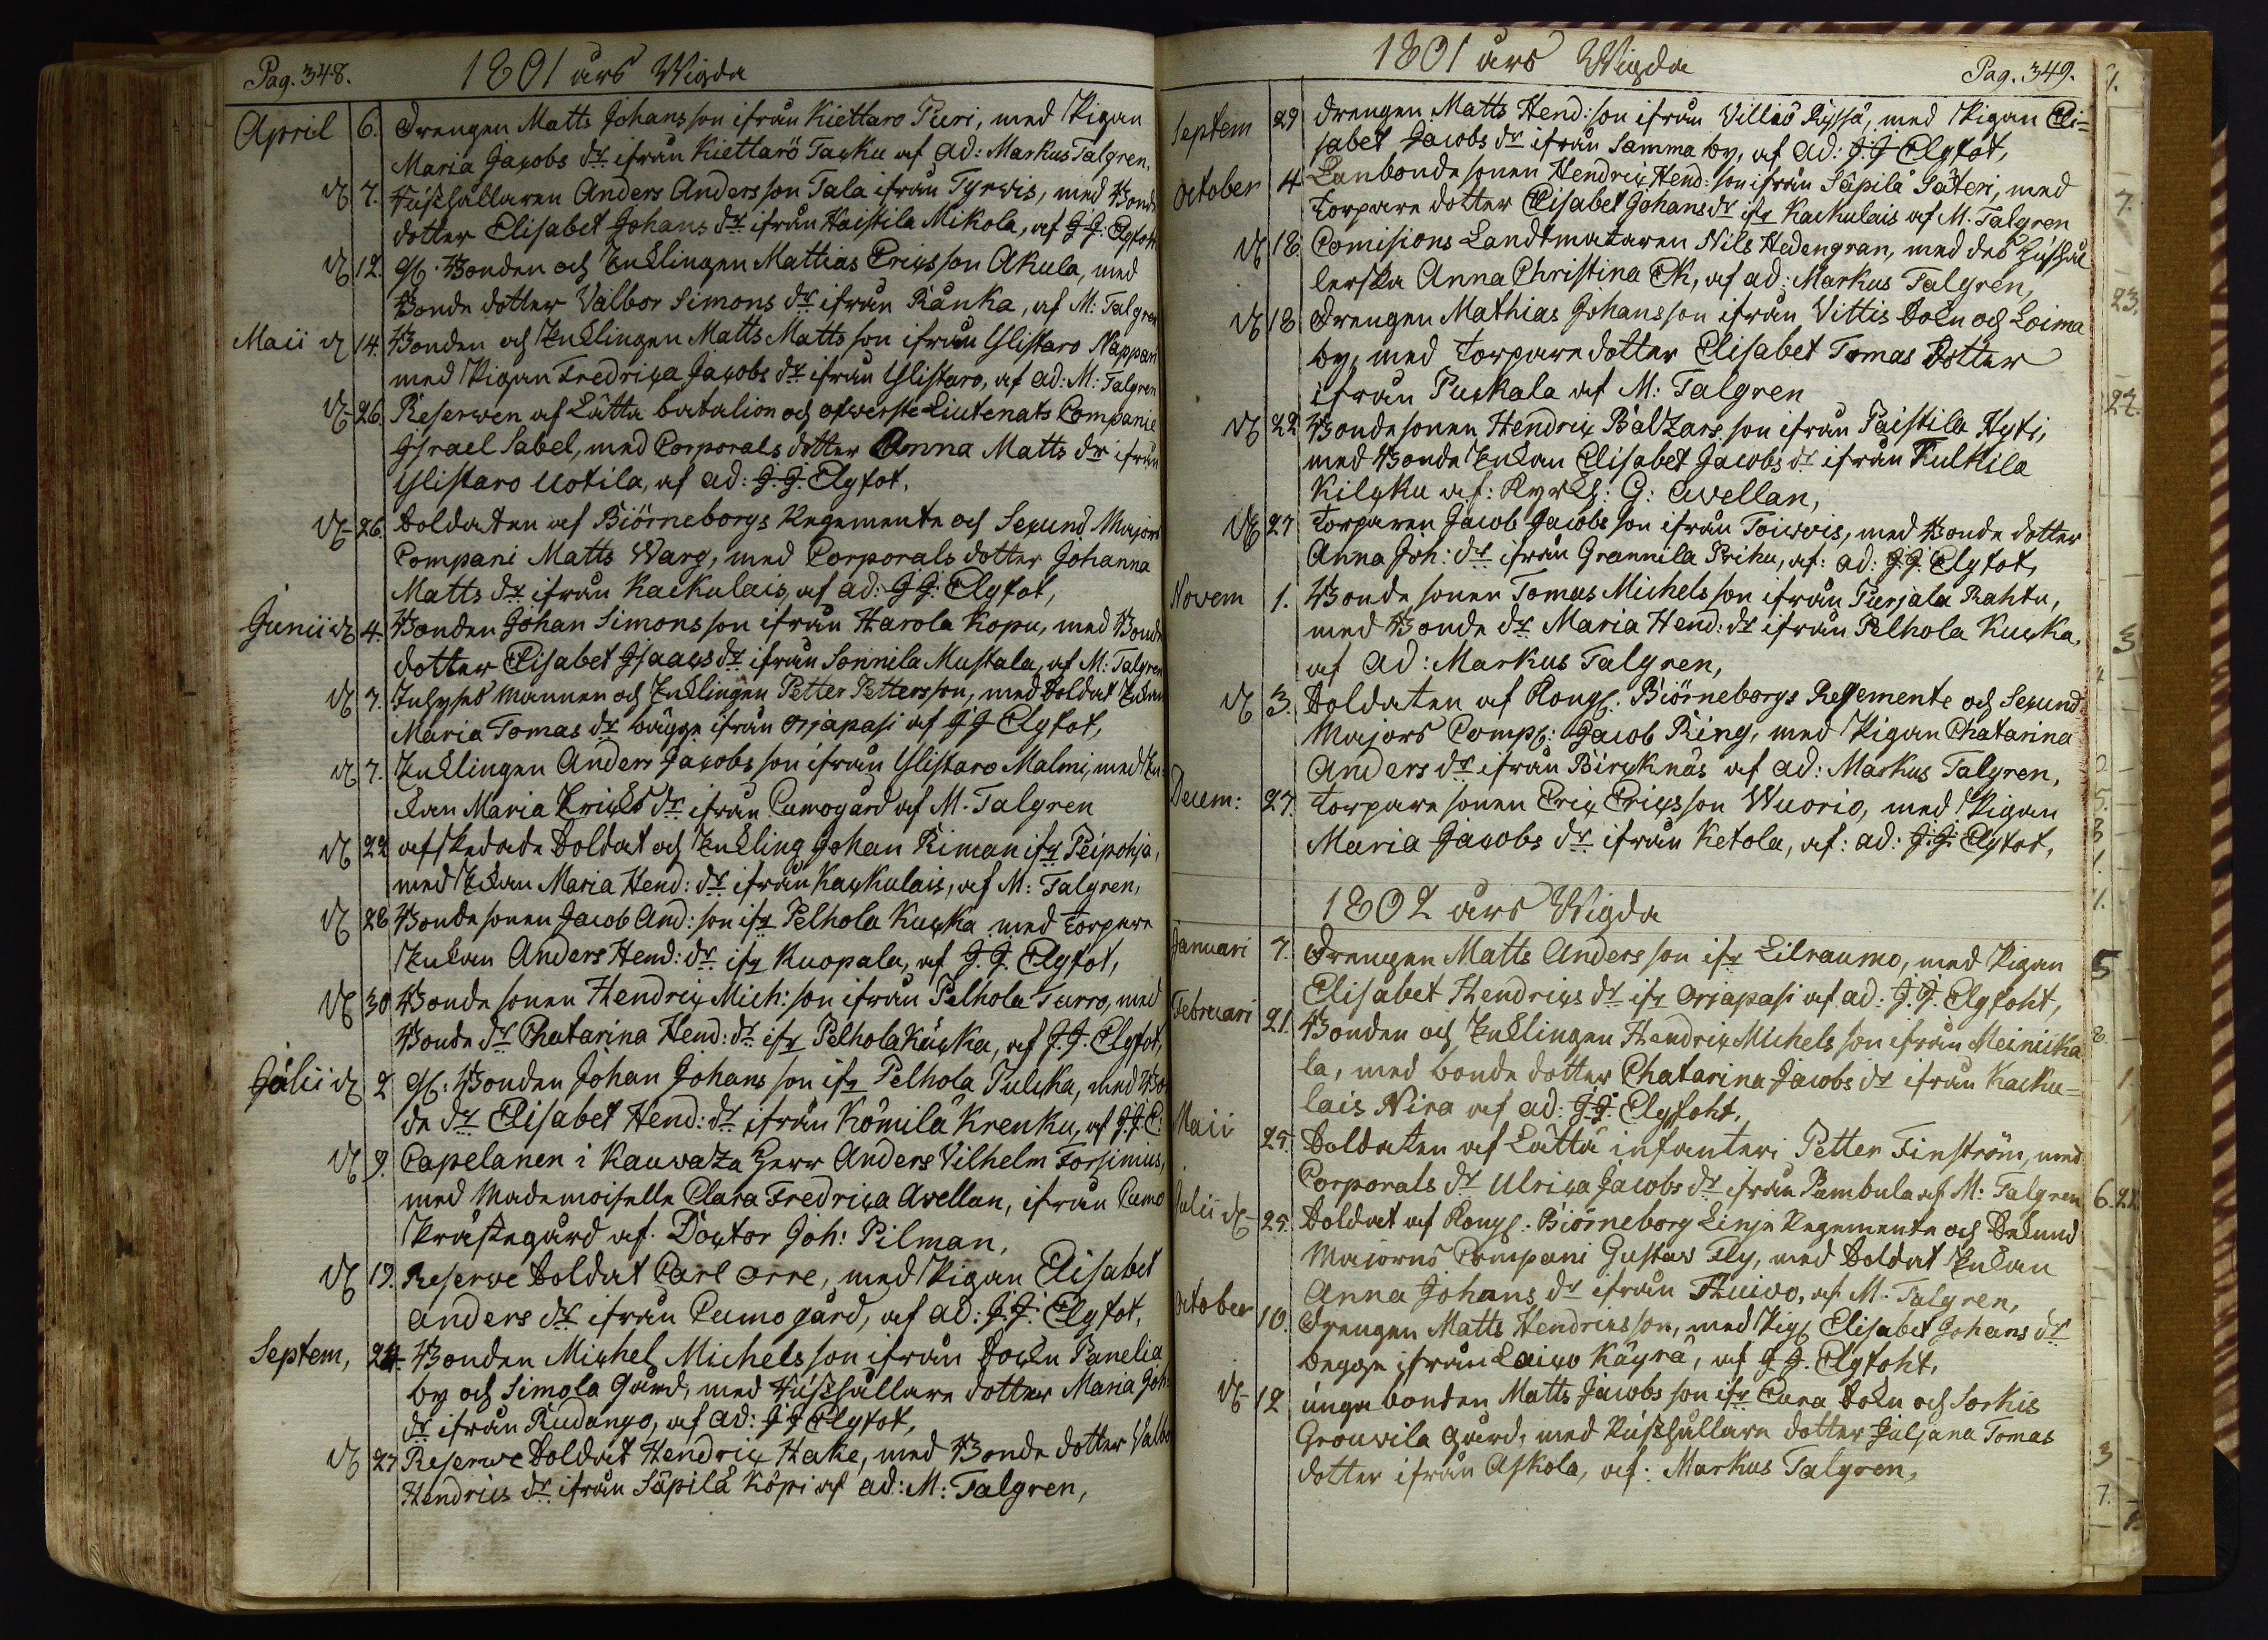 Pag. 348.
1801 års Wigda
April 6. Drengen Matts Johansson ifrån Kiettaro Piri, med Pigan
Maria Jacobs dr ifrån Kiettarö Tacku af ad: Markus Talgren,
d 7. Rusthållaren Anders Andersson Tala ifrån Tyrwis, med Bonde
dotter Elisabet Johans dr ifrån Haistila Mikola, af J.J: Elgfot
d 12. gl. Bonden och Enklingen Mattias Ericsson Akula, med
Bonde dotter Valbor Simons dr ifrån Rånka, af M: Talgren
Maii d 14. Bonden och Enklingen Matts Mattsson ifrån Ylistaro Nappari
med Pigan Fredrica Jacobs dr ifrån Ylistaro, af ad: M: Talgren
d 26. Reserwen af Lätta batalion och ofwerste Liutenats Companie
Israel Sabel, med Corporals dotter Anna Matts dr ifrån
Ylistaro Uotila, af ad: J.J. Elgfot,
d 26. Soldaten af Biörneborgs Regemente och Secund Majors
Compani Matts Warg, med Corporals dotter Johanna
Matts dr ifrån Kackulais, af ad: J J: Elgfot,
Junii d 4. Bonden Johan Simonsson ifrån Harola Kopu, med Bonde
dotter Elisabet Isaacs dr ifrån Sonnila Mustala, af M: Talgren
d 7. Inhyses mannen och Enklingen Petter Pettersson, med Soldat Enkan
Maria Tomas dr bägge ifrån Orjapasi af J J Elgfot,
d 7. Enklingen Anders Jacobsson ifrån Ylistaro Malmi, med En-
kan Maria Ericks dr ifrån Cumogård af M. Talgren
d 22 afskedade Soldat och Enkling Johan Riman ifr Peipohja,
med Enkan Maria Hend: dr ifrån Kackulais, af M: Talgren,
d 28 Bondesonen Jacob And: son ifr Pelhola Kucka med Torpare
Enkan Anders Hend: dr ifr Kuopala, af J. J. Elgfot,
d 30 Bonde sonen Hendric Mich: son ifrån Pelhola Turro, med
Bonde dr Chatarina Hend: dr ifr Pelhola Kucka, af J. J. Elgfot,
Julii d 2 gl: Bonden Johan Johansson ifr Pelhola Julcka, med Bon
de dr Elisabet Hend: dr ifrån Kömilä Krenku, af J.J. E:
d 9. Capelanen i Kauvatza Herr Anders Vilhelm Forsimus,
med Mademoiselle Clara Fredrica Avellan, ifrån Cumo
Prästegård af. Doctor Joh: Pilman,
d 19. Reserve Soldat Carl Orre, med Pigan Elisabet
Anders dr ifrån Cumo gård, af ad: J.J. Elgfot,
Septem, 24. Bonden Michel Michelsson ifrån Sockn Panelia
by och Simola Gård, med Rusthållare dotter Maria Joh:
dr ifrån Rudango, af ad: J J Elgfot,
d 27 Reserwe Soldat Hendric Hake, med Bonde dotter Valbo
Hendrics dr ifrån Säpilä Köpi af ad: M: Talgren,
1801 års Wigda
Pag. 349.
Septem 29 Drengen Matts Hend: son ifrån Villiö Pyssä, med Pigan Eli=
sabet Jacobs dr ifrån Samma by, af ad: J.J Elgfot,
October 4 Lanbondesonen Hendric Hend: son ifrån Säpilä Säteri, med
Torpare dotter Elisabet Johansdr ifr Kackulais af M. Talgren
d 18 Comisions Landtmataren Nils Hedengran, med des Hushål
lerska Anna Christina Ek, af ad: Markus Talgren,
d 18 Drengen Mathias Johansson ifrån Vittis Sokn och Loima
by, med Torpare dotter Elisabet Tomas Dotter
ifrån Puckala af M: Talgren
d 22 Bondesonen Hendric Baltzars son ifrån Paistila Hyti,
med Bonde Enkan Elisabet Jacobs dr ifrån Kulkila
Kilcku af: Kyrkh: G: Avellan,
d 27 Torparen Jacob Jacobsson ifrån Toivois, med Bonde dotter
Anna Joh: dr ifrån Grannila Prihu, af: ad: J.J. Elgfot,
Novem 1. Bonde sonen Tomas Michelsson ifrån Purjala Rahtu,
med Bonde dr Maria Hend: dr ifrån Pelhola Kucka,
af ad: Markus Talgren,
d 3. Soldaten af Kongl. Biörneborgs Regemente och Secund
Majors Compl: Jacob Ring, med Pigan Chatarina
Anders dr ifrån Bircknäs af ad: Markus Talgren,
Decem: 27. Torpare sonen Eric Ericsson Wuorio, med Pigan
Maria Jacobs dr ifrån Ketola, af: ad: J.J. Elgfot,
1802 års Wigda
Januari 7. Drengen Matts Andersson ifr Lilraumo, med Pigan
Elisabet Hendrics dr ifr Orjapasi af ad: J.J. Elgfoht,
Februari 21. Bonden och Enklingen Hendric Michelsson ifrån Meinicka
la, med bonde dotter Chatarina Jacobs dr ifrån Kacku=
lais Nira af ad: J.J. Elgfoht,
Maii 25. Soldaten af Lätta infanteri Petter Finström, med
Corporals dr Ulrica Jacobs dr ifrån Pambula af M: Talgren
Julii d 25. Soldat af Kongl. Biörneborg Linje Regemente och Sekund
Majorns Compani Gustav Fly, med Soldat Enkan
Anna Johans dr ifrån Thuivo, af M. Talgren,
October 10. Drengen Matts Hendricsson, med Pig Elisabet Johans dr
begge ifrån Laico Käyrä, af J. J. Elgfoht,
d 12 unga bonden Matts Jacobsson ifr Eura Sokn och Sorkis
Grouvila gård, med Rusthållare dotter Juljana Tomas
dotter ifrån Askola, af: Markus Talgren,